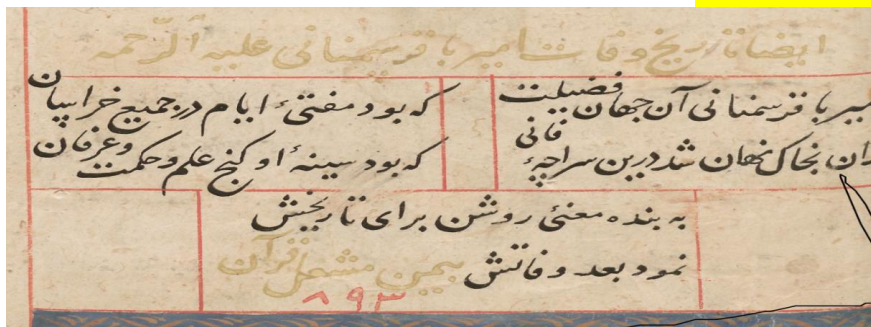 ایضا تاریخ وفات امیر باقر سمنانی علیه الرحمه
میر باقر سمنانی آن جهان فضیلت که بود مفتئ ایام در جمیع خراسان
ازان بخاک نهان شد درین سراچهٔ فانی که بود سینهٔ او کنج علم وحکمت وعرفان
به بنده معنئ روشن برای تاریخش
نمود بعد وفاتش بیمن مشعل قرآن
۸۹۳